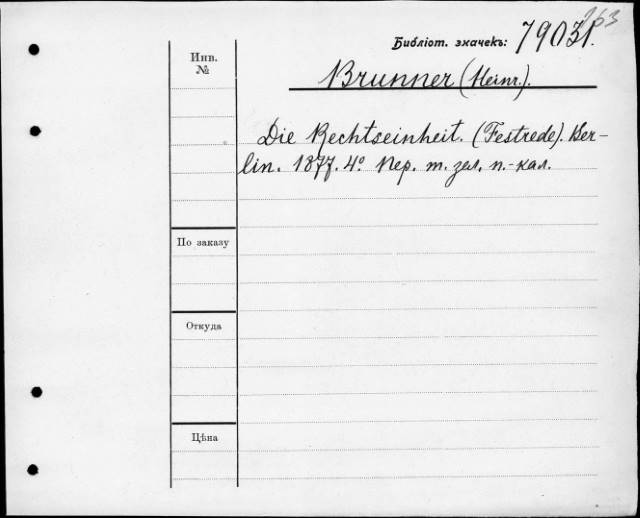 263
Библіот. значекъ: 79031.
Инв.
№
Brunner (Heinr.).
Die Rechtseinheit. (Festrede). Ber-
lin. 1877. 4º. Пер. т. зел. п.-кал.
По заказу
Откуда
Цѣна